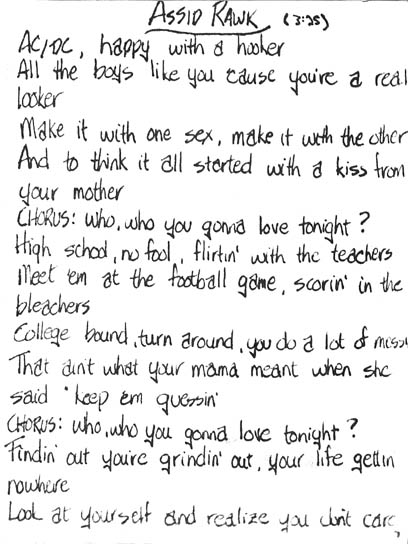 ASSID RAWK (3:35)
AC/DC, happy with a hooker
All the boys like you 'cause you're a real
looker
Make it with one sex, make it with the other
And to think it all started with a kiss from
your mother
CHORUS: who, who you gonna love tonight?
High school, no fool, flirtin' with the teachers
Meet 'em at the football game, scorin' in the
bleachers
College bound, turn around, you do a lot of
That ain't what your mama meant when she
said "keep em guessin'
CHORUS: who, who you gonna love tonight?
Findin' out you're grindin' out, your life gettin
nowhere
Look at yourself and realize you don't care